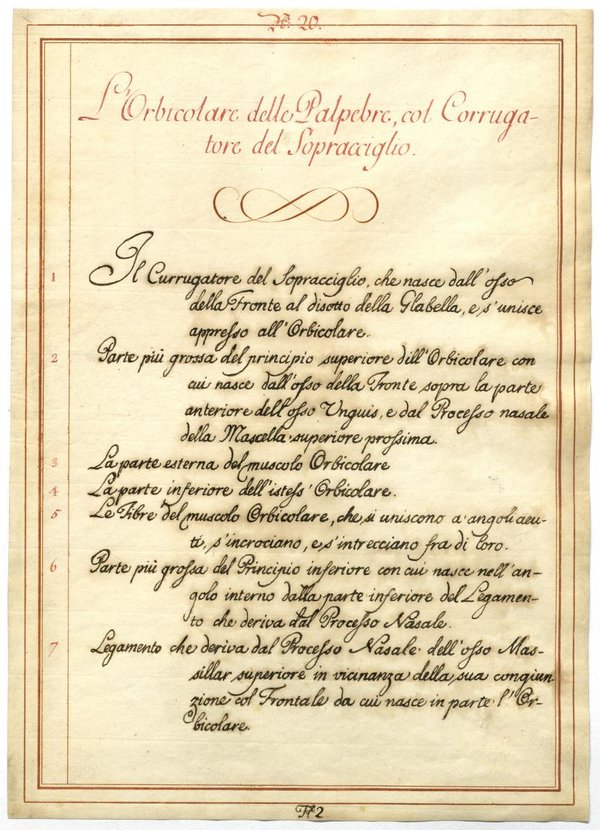 N.º 20.
L'Orbicolare delle Palpebre, col Corruga-
tore del Sopracciglio.
1 Il Currugatore del Sopracciglio, che nasce dall'osso
della Fronte al disotto della Glabella, e s'unisce
appresso all'Orbicolare.
2 Parte più grossa del principio superiore dell'Orbicolare con
cui nasce dall'osso della Fronte sopra la parte
anteriore dell'osso Unguis, e dal Processo nasale
della Mascella superiore prossima.
3 La parte esterna del muscolo Orbicolare
4 La parte inferiore dell'istess'Orbicolare.
5 Le Fibre del muscolo Orbicolare, che si uniscono a angoli acu-
ti, s'incrociano, e s'intrecciano fra di loro.
6 Parte più grossa del Principio inferiore con cui nasce nell'an-
golo interno dalla parte inferiore del Legamen-
to che deriva dal Processo Nasale.
7 Legamento che deriva dal Processo Nasale dell'osso Mas-
sillar superiore in vicinanza della sua congiun-
zione col Frontale da cui nasce in parte l'Or-
bicolare.